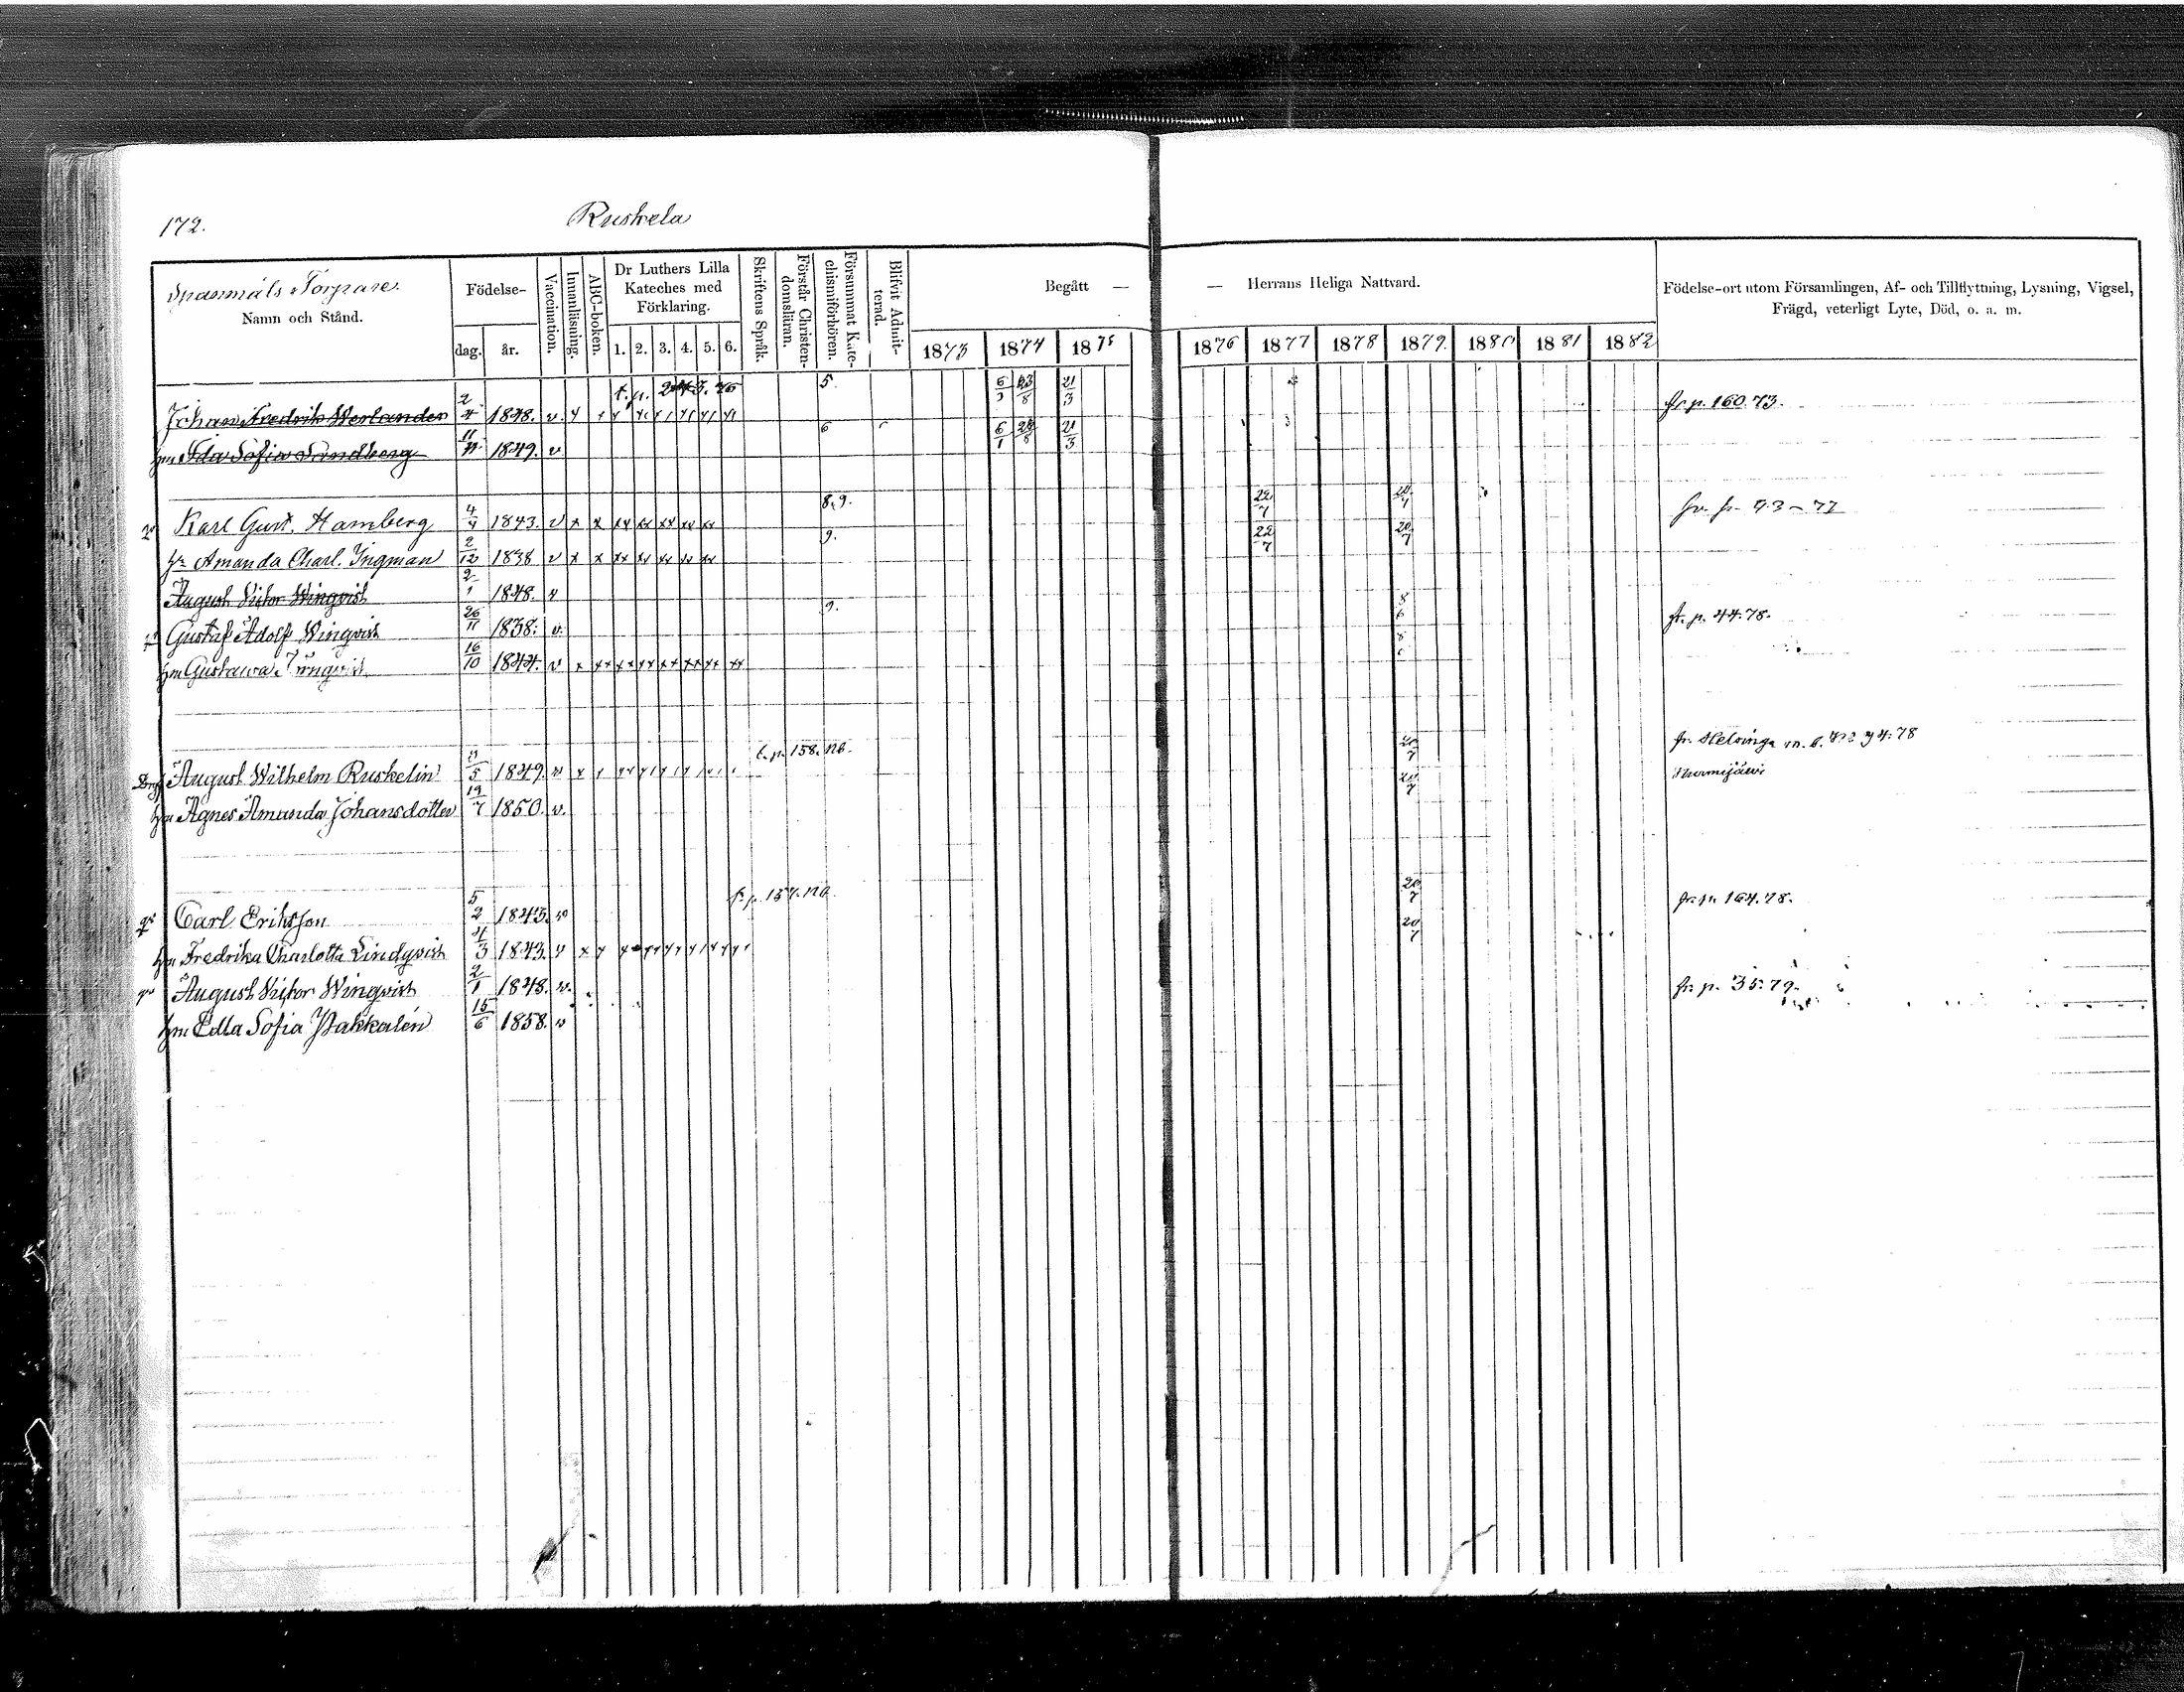 172. Ruskela
Spanmåls Torpare.
Namn och Stånd.
Födelse-
dag. år.
Vaccination.
Innanläsning.
ABC-boken.
Dr Luthers Lilla
Kateches med
Förklaring.
1. 2. 3. 4. 5. 6.
Skriftens Språk.
Förstår Christen-
domsläran.
Försummat Kate-
chismiförhören.
Blifvit Admit-
terad.
Begått — — Herrans Heliga Nattvard.
1873 1874 1875 1876 1877 1878 1879 1880 1881 1882
Födelse-ort utom Församlingen, Af- och Tillflyttning, Lysning, Vigsel,
Frägd, veterligt Lyte, Död, o. a. m.
Johan Fredrik Werlander 2/4 1848. v. 5. 21/3 fr. p. 160.73.
hm Ida Sofia Sandberg 1849. v 6 6/1 21/3
Karl Gust. Hamberg 4/4 1843. v x x xx xx xx xx xx 8,9. 22/7 fr. p. 93-77
Amanda Charl. Ingman 2/12 1838 v x x xx xx xx xx xx 9. 22/7 20/7
August Victor Winqvist 2/1 1848. v
Gustaf Adolf Winqvist 26/11 1838. v. 9. 8/6 fr. p. 44.78.
hm Gustawa 16/10 1844. v x xx xx xx xx xx xx xx
August Wilhelm Ruskelin 1849. v t. p. 158. 20/7 fr. Helsinge 78
hm Agnes Amanda Johansdotter 19/7 1850. v. 20/7 Nurmijärvi
Carl Eriksson 5/2 1843. v t. p. 157. 20/7 fr. p. 164.78.
hm Fredrika Charlotta Lindqvist 4/3 1843. v 20/7
August Victor Winqvist 2/1 1848. v. fr. p. 35.79.
hm Edla Sofia Pakkalén 15/6 1858. v